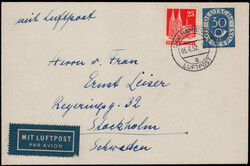 mit Luftpost
25
30
HAMBURG
LUFTPOST
Herrn u. Frau
Ernst Leiser
Regeringsg. 32
Stockholm
Schweden
MIT LUFTPOST
PAR AVION